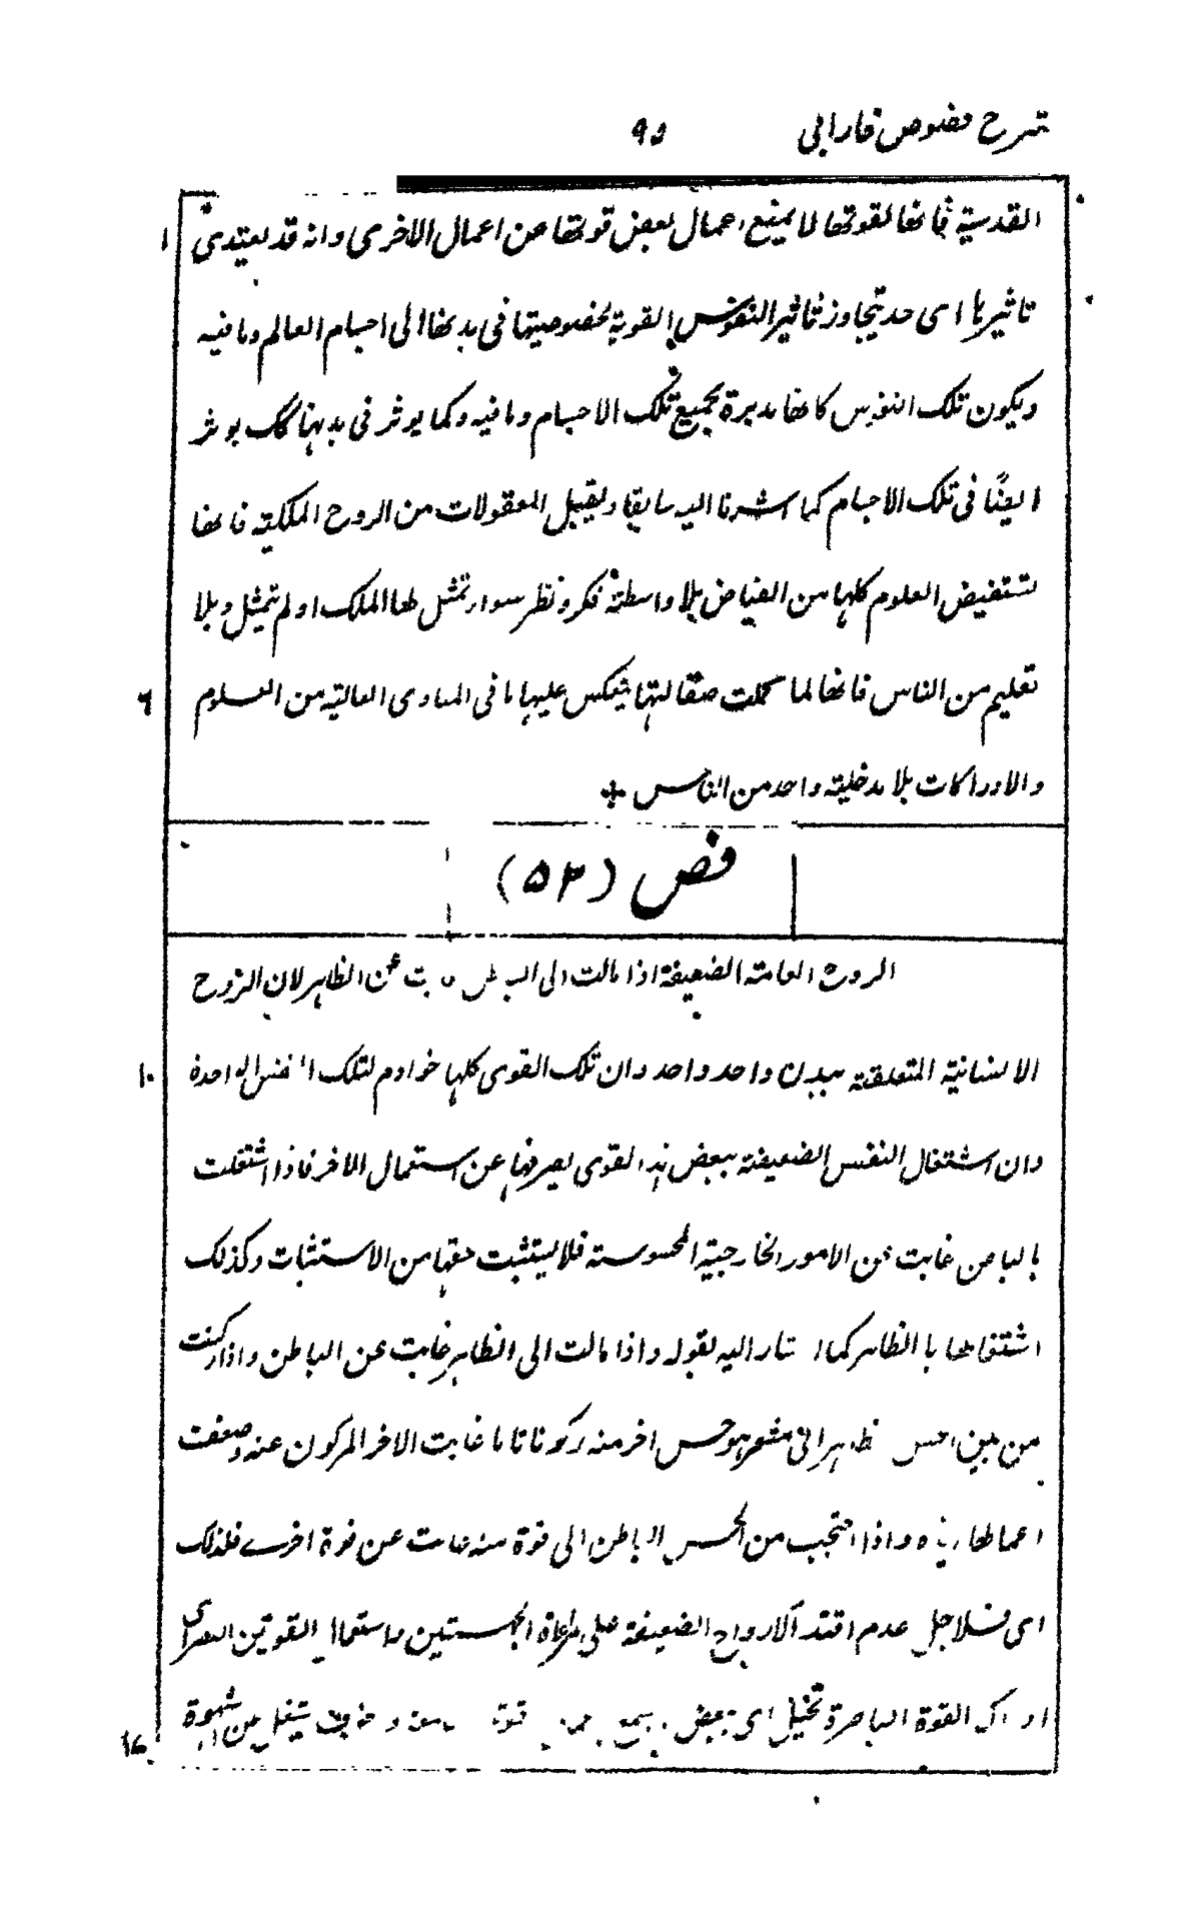 شرح فصوص فارابی
۹۵
القدسیة فانها لقوتها لا یمنع اعمال بعض قوتها عن اعمال الاخری وانه قد یعتدی
۱
تاثیرها ای حد یتجاوز تاثیر النفوس القویة لخصوصیتها فی بدنها الی اجسام العالم وما فیه
ویکون تلک النفوس کانها مدبرة لجمیع تلک الاجسام وما فیه وکما یوثر فی بدنها کک یوثر
ایضًا فی تلک الاجسام کما اشرنا الیه سابقا ویقبل المعقولات من الروح الملکیة فانها
تستفیض العلوم کلها من الفیاض بلا واسطة فکر ونظر سواء تمثل لها الملک او لم یتمثل وبلا
تعلیم من الناس فانها لما کملت صقالتها ینعکس علیها ما فی المبادی العالیة من العلوم
۶
والادراکات بلا مدخلیة واحد من الناس +
فص (۵۳)
الروح العامة الضعیفة اذا مالت الی الباطن غابت عن الظاهر لان الروح
الانسانیة المتعلقة ببدن واحد واحد وان تلک القوی کلها خوادم لتلک النفس الواحدة
۱۰
وان اشتغال النفس الضعیفة ببعض هذه القوی یصرفها عن استعمال الاخر فاذا اشتغلت
بالباطن غابت عن الامور الخارجیة المحسوسة فلا یستثبت حقها من الاستثبات وکذلک
اشتغالها بالظاهر کما اشار الیه بقوله واذا مالت الی الظاهر غابت عن الباطن واذا رکنت
من بین الحس ظاهر الی مشعر هو حس اخر منه رکونا تاما غابت الاخر المرکون عنه وضعفت
اعمالها واذا احتجب من الحس الباطن الی قوة منه غابت عن قوة اخرے فلذلک
ای فلاجل عدم اقتدار الارواح الضعیفة علی مراعاة الجنبتین واستعمال القوتین البصرای
ادراک القوة الباصرة تخیل ای بعض قوة یشغل عن الشهوة
۱۷